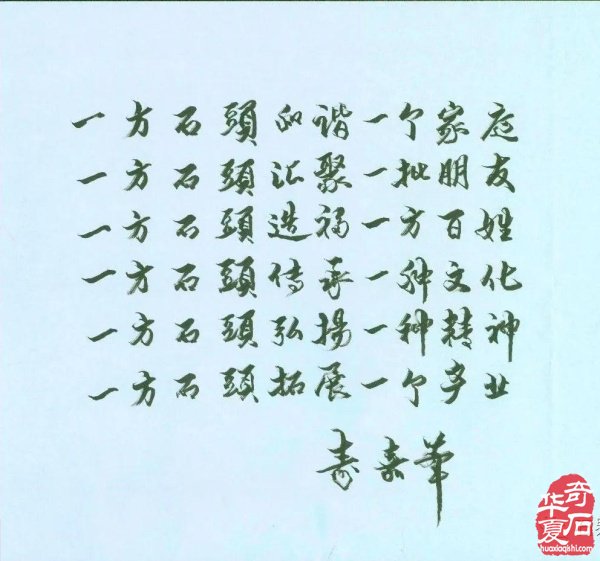 一方石頭和谐一个家庭
一方石頭汇聚一批朋友
一方石頭造福一方百姓
一方石頭传承一种文化
一方石頭弘揚一种精神
一方石頭拓展一个产业
寿嘉华
华夏奇石
huaxiaqishi.com